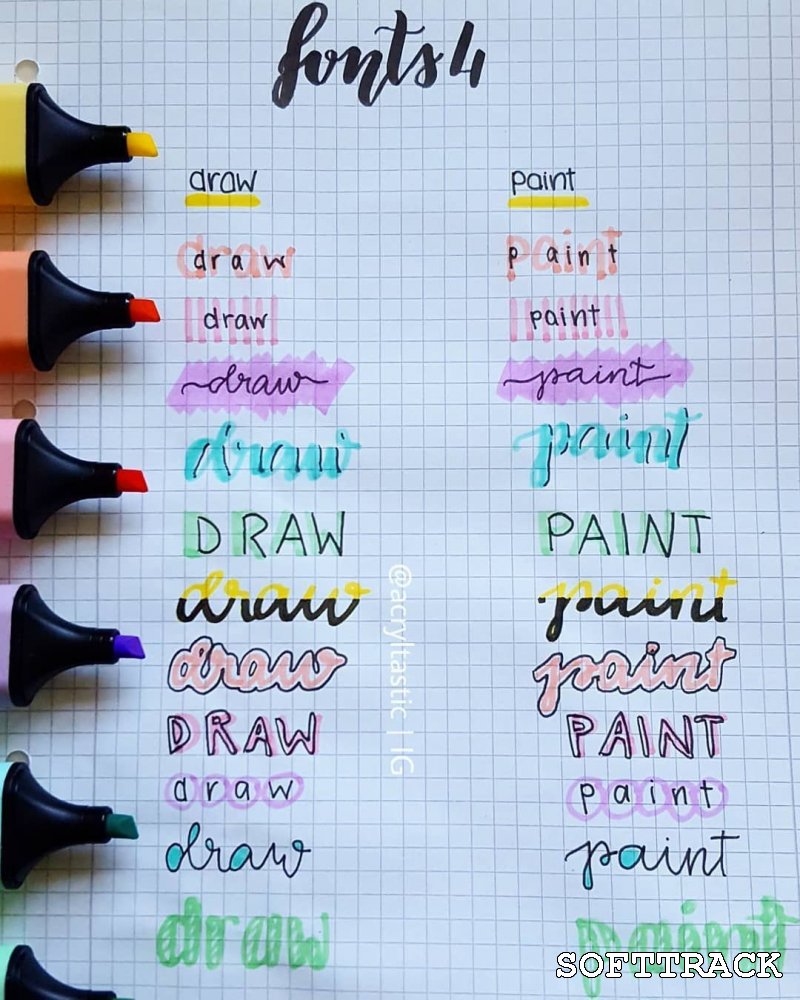 fonts 4
draw paint
draw paint
draw paint
draw paint
draw paint
DRAW PAINT
draw paint
draw paint
DRAW PAINT
draw paint
draw paint
draw paint
@acryltastic | IG
SOFTTRACK